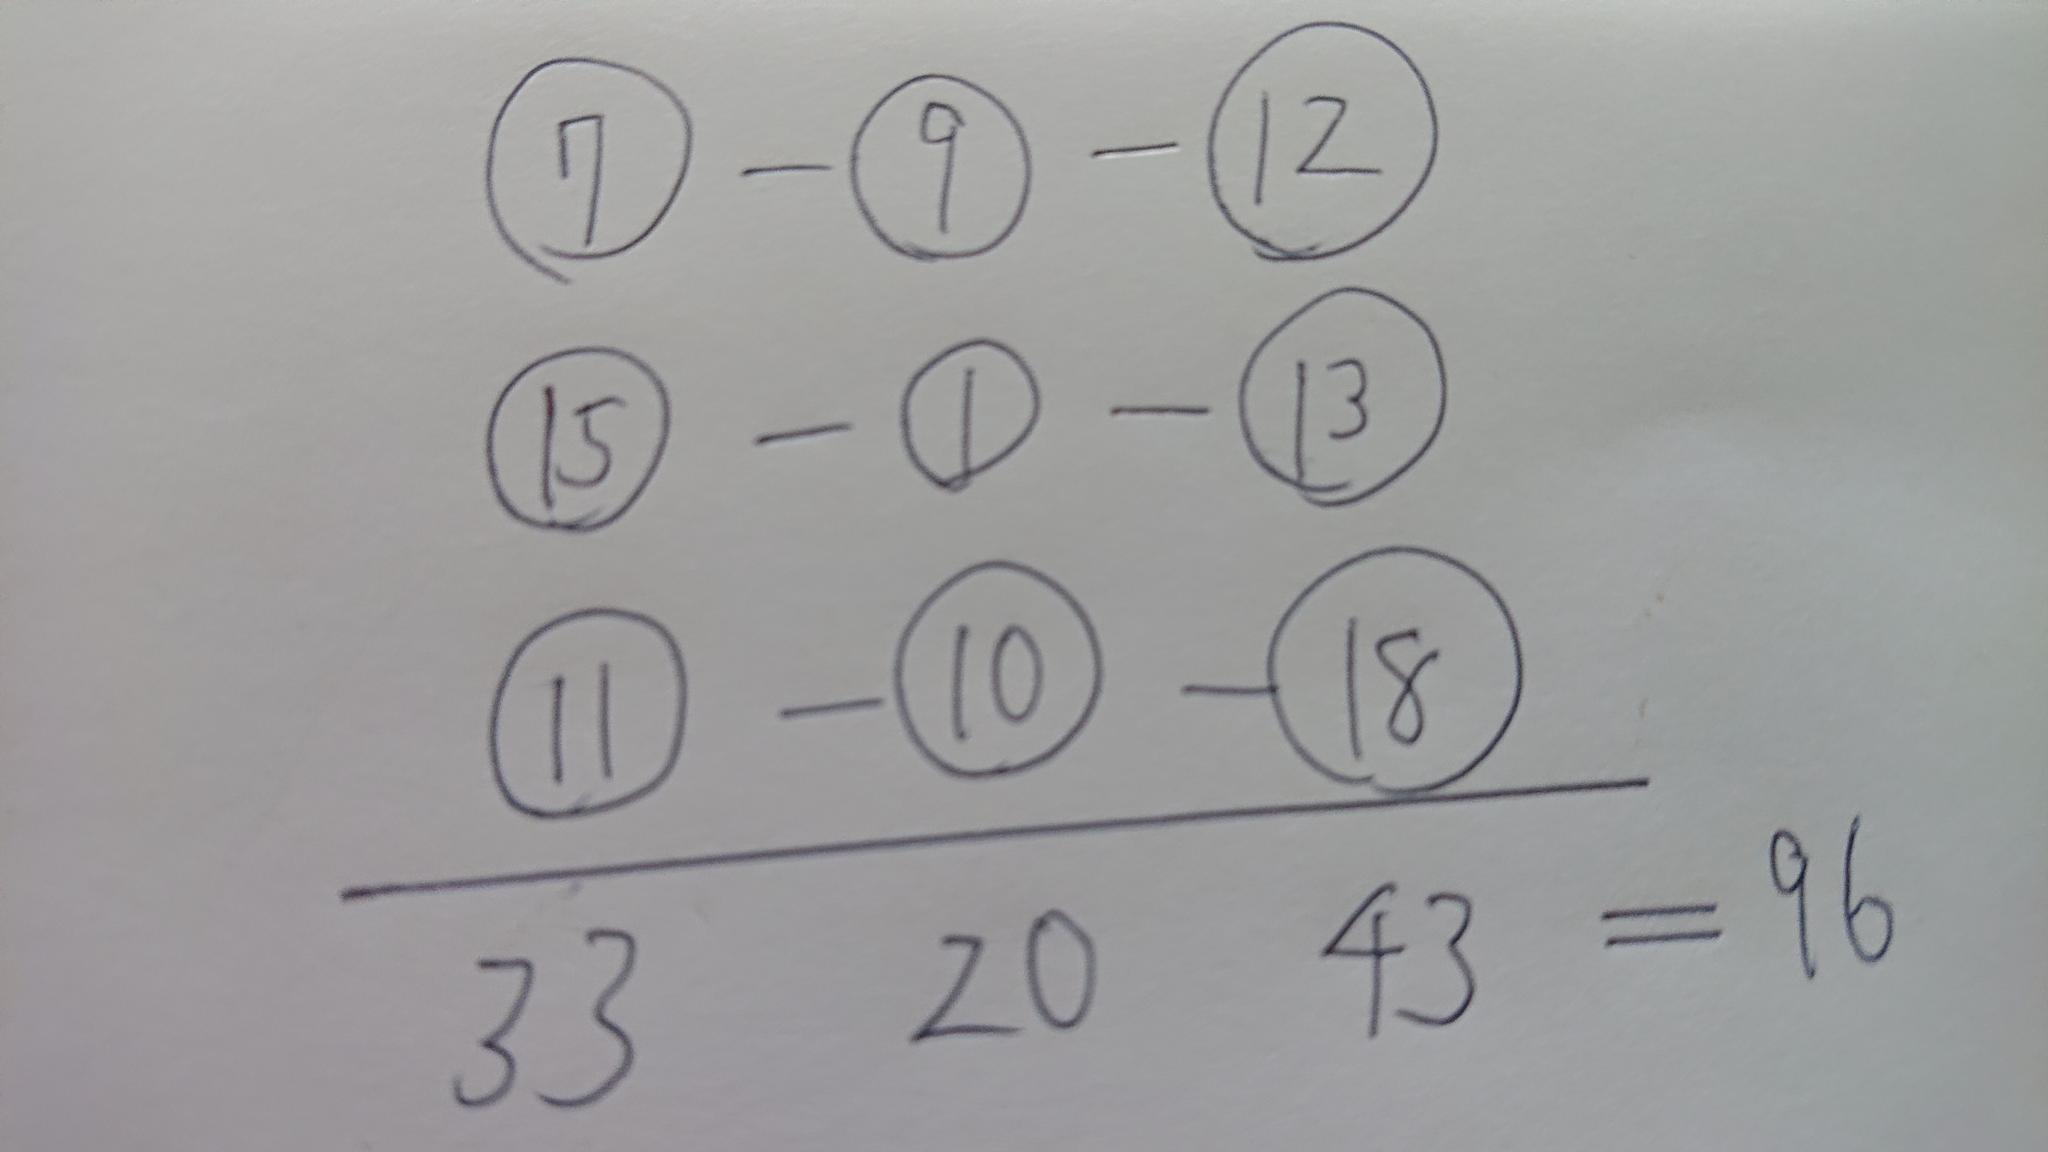 ⑦ - ⑨ - ⑫
⑮ - ① - ⑬
⑪ - ⑩ - ⑱
33 20 43 = 96